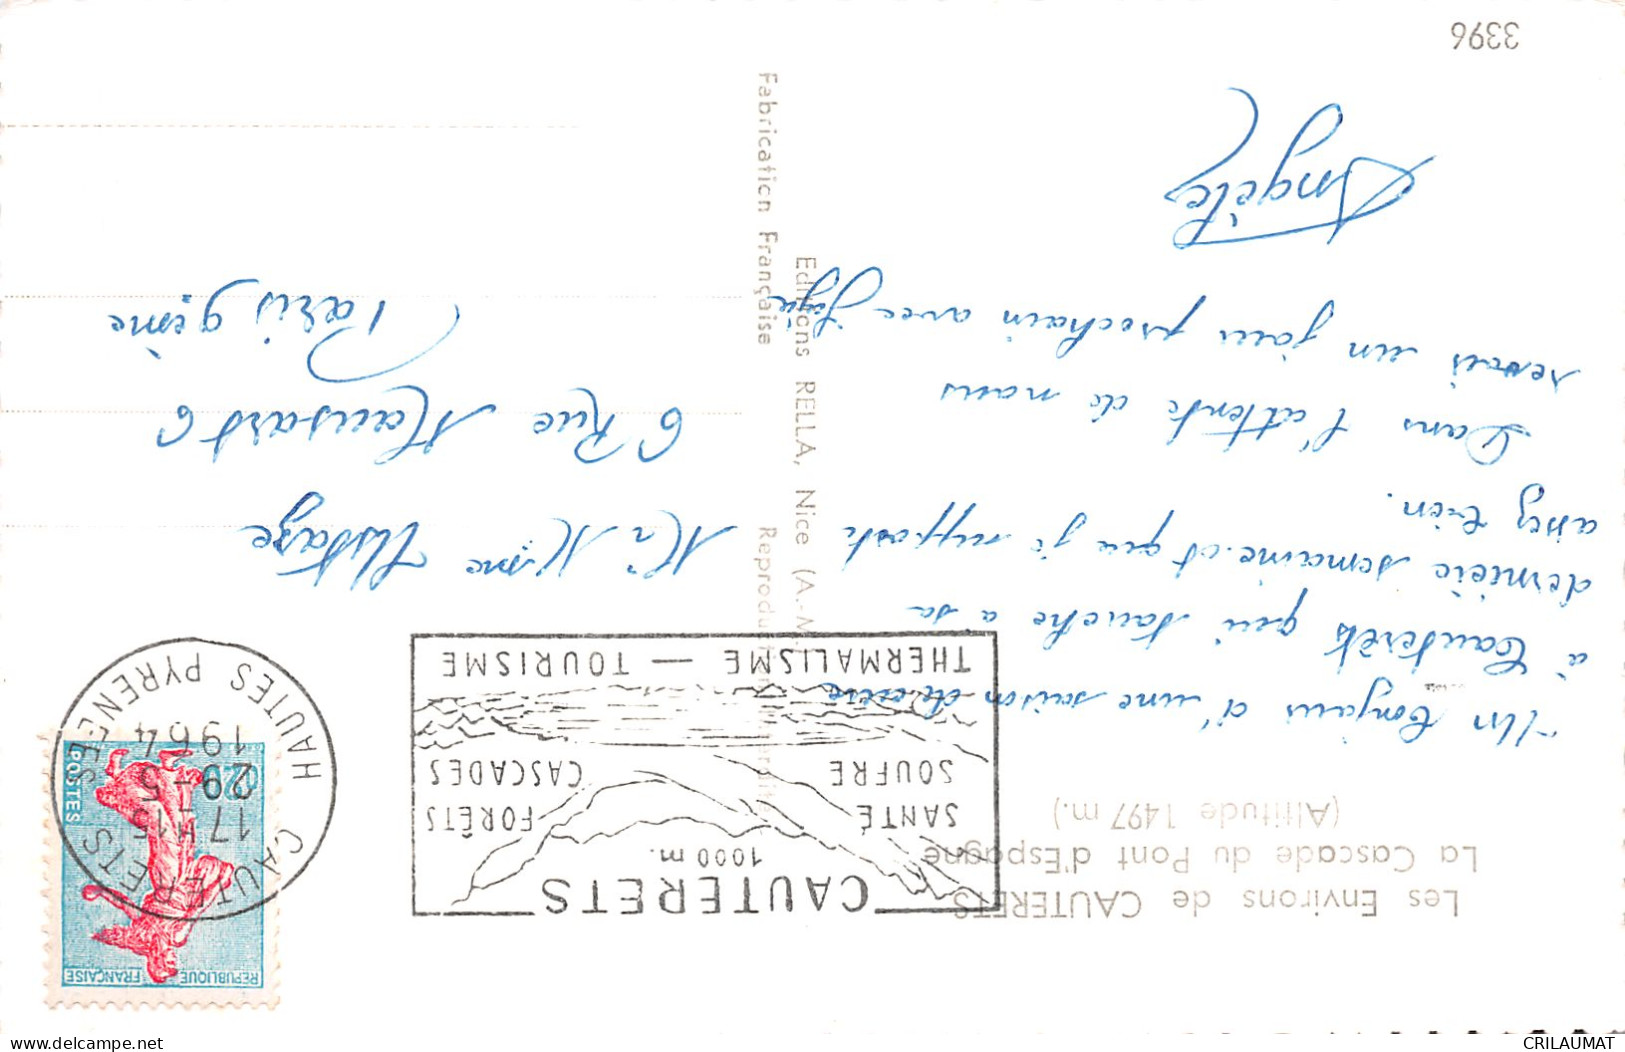 Les Environs de CAUTERETS
La Cascade du Pont d'Espagne
(Altitude 1497 m.)
Un bonjour d'une saison de cure
à Cauterets qui touche à sa
dernière semaine et que je supporte
assez bien.
Dans l'attente de nous
revoir un jour prochain avec joie
Angèle
3396
Editions RELLA, Nice (A.-M.
Fabrication Française
Reproduction interdite
CAUTERETS
1000 m.
SANTÉ
FORÊTS
SOUFRE
CASCADES
THERMALISME — TOURISME
CAUTERETS
17H15
29-5
1964
HAUTES PYRENEES
REPUBLIQUE FRANÇAISE
0,20
POSTES
Mr Mme
6 Rue Mansart 6
Paris 9ème
CRILAUMAT